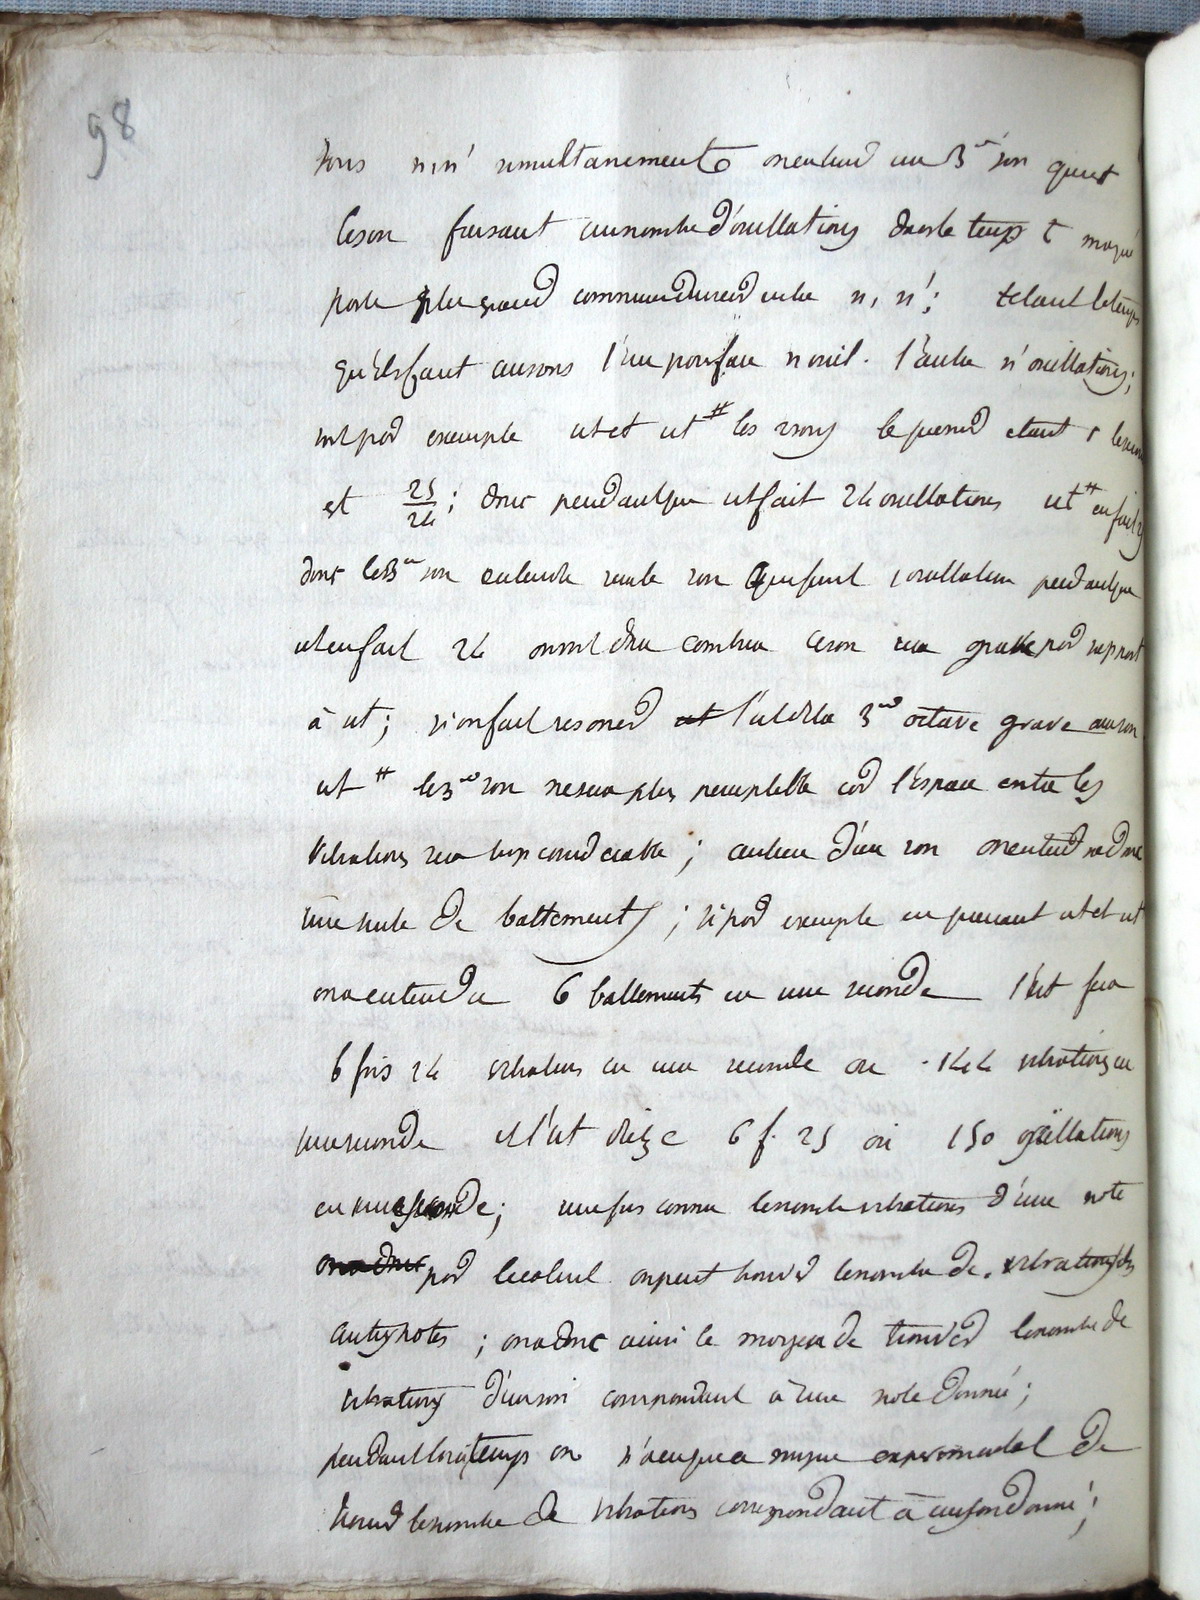 98
sons n, n' simultanement on entend un 3e son qui est
le son faisant un nombre d'oscillations dans le temps t
par le plus grand commun diviseur entre n, n'; t etant le temps
qu'il faut aux sons l'un pour faire n oscil. l'autre n' oscillations;
soit par exemple ut et ut # les sons le premier etant 1 le second
est 25/24 ; donc pendant que ut fait 24 oscillations ut # en fait
donc le 3e son entendu sera le son qui fait 1 oscillation pendant que
ut en fait 24 on voit donc combien ce son sera grave par rapport
à ut ; si on fait resoner l'ut de la 3me octave grave au son
ut # le 3me son ne sera plus perceptible car l'espace entre les
vibrations sera trop considerable ; au lieu d'un son on entendra donc
une suite de battements ; si par exemple en prenant ut et ut
on a entendu 6 battements en une seconde l'ut fera
6 fois 24 vibrations en une seconde ou 144 vibrations en
une seconde et l'ut dièze 6 f. 25 ou 150 oscillations
en une seconde; une fois connu le nombre vibrations d'une note
par le calcul on peut trouver le nombre de vibrations des
autres notes ; on a donc ainsi le moyen de trouver le nombre de
vibrations d'un son correspondant à une note donnée ;
pendant longtemps on n'a eu que a moyen experimental de
trouver le nombre de vibrations correspondant à un son donné ;